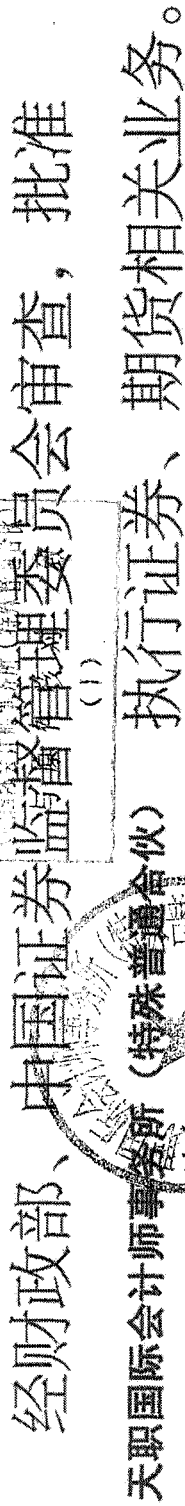 经财政部、中国证券监督管理委员会审查，批准
天职国际会计师事务所（特殊普通合伙） 执行证券、期货相关业务。
（1）